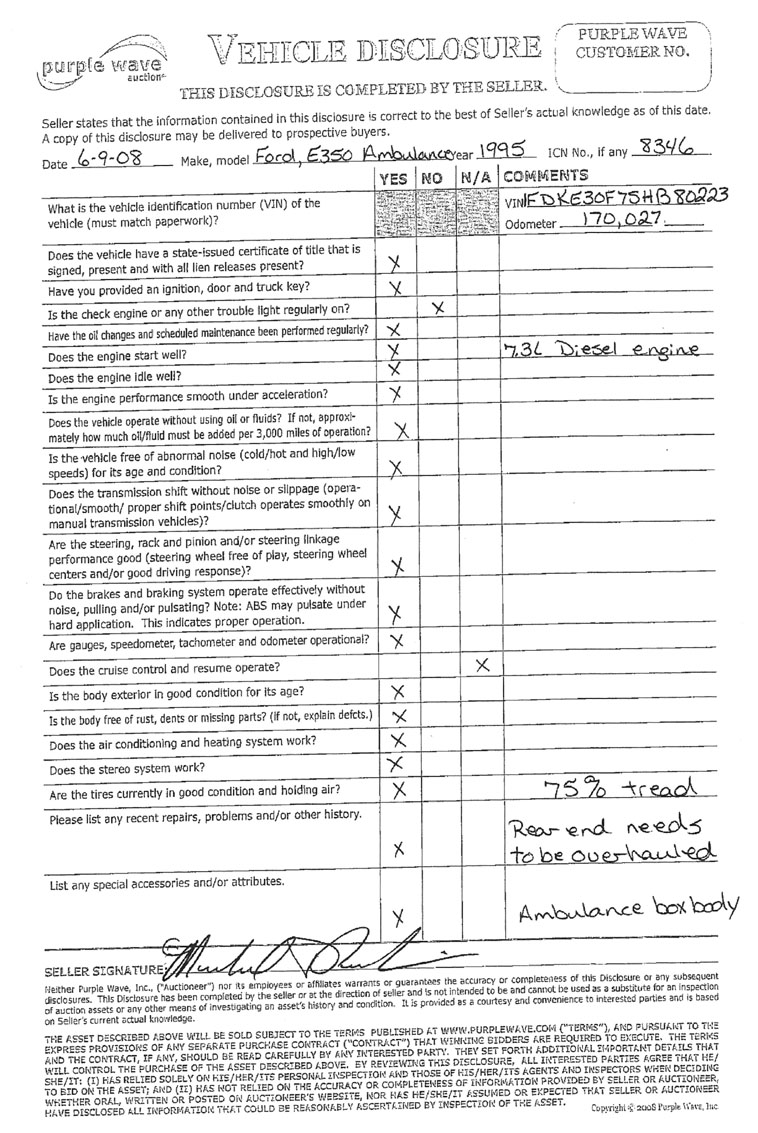 purple wave
auction
VEHICLE DISCLOSURE
PURPLE WAVE
CUSTOMER NO.
THIS DISCLOSURE IS COMPLETED BY THE SELLER.
Seller states that the information contained in this disclosure is correct to the best of Seller's actual knowledge as of this date.
A copy of this disclosure may be delivered to prospective buyers.
Date 6-9-08 Make, model Ford, E350 Ambulance year 1995 ICN No., if any 8346
YES NO N/A COMMENTS
What is the vehicle identification number (VIN) of the
vehicle (must match paperwork)?
VIN 1FDKE30F7SHB80223
Odometer 170,027
Does the vehicle have a state-issued certificate of title that is
signed, present and with all lien releases present? X
Have you provided an ignition, door and truck key? X
Is the check engine or any other trouble light regularly on? X
Have the oil changes and scheduled maintenance been performed regularly? X
Does the engine start well? X 7.3L Diesel engine
Does the engine idle well? X
Is the engine performance smooth under acceleration? X
Does the vehicle operate without using oil or fluids? If not, approxi-
mately how much oil/fluid must be added per 3,000 miles of operation? X
Is the vehicle free of abnormal noise (cold/hot and high/low
speeds) for its age and condition? X
Does the transmission shift without noise or slippage (opera-
tional/smooth/ proper shift points/clutch operates smoothly on
manual transmission vehicles)? X
Are the steering, rack and pinion and/or steering linkage
performance good (steering wheel free of play, steering wheel
centers and/or good driving response)? X
Do the brakes and braking system operate effectively without
noise, pulling and/or pulsating? Note: ABS may pulsate under
hard application. This indicates proper operation. X
Are gauges, speedometer, tachometer and odometer operational? X
Does the cruise control and resume operate? X
Is the body exterior in good condition for its age? X
Is the body free of rust, dents or missing parts? (If not, explain defcts.) X
Does the air conditioning and heating system work? X
Does the stereo system work? X
Are the tires currently in good condition and holding air? X 75% tread
Please list any recent repairs, problems and/or other history.
X Rear end needs
to be overhauled
List any special accessories and/or attributes.
X Ambulance box body
SELLER SIGNATURE
Neither Purple Wave, Inc., ("Auctioneer") nor its employees or affiliates warrants or guarantees the accuracy or completeness of this Disclosure or any subsequent
disclosures. This Disclosure has been completed by the seller or at the direction of seller and is not intended to be and cannot be used as a substitute for an inspection
of auction assets or any other means of investigating an asset's history and condition. It is provided as a courtesy and convenience to interested parties and is based
on Seller's current actual knowledge.
THE ASSET DESCRIBED ABOVE WILL BE SOLD SUBJECT TO THE TERMS PUBLISHED AT WWW.PURPLEWAVE.COM ("TERMS"), AND PURSUANT TO THE
EXPRESS PROVISIONS OF ANY SEPARATE PURCHASE CONTRACT ("CONTRACT") THAT WINNING BIDDERS ARE REQUIRED TO EXECUTE. THE TERMS
AND THE CONTRACT, IF ANY, SHOULD BE READ CAREFULLY BY ANY INTERESTED PARTY. THEY SET FORTH ADDITIONAL IMPORTANT DETAILS THAT
WILL CONTROL THE PURCHASE OF THE ASSET DESCRIBED ABOVE. BY REVIEWING THIS DISCLOSURE, ALL INTERESTED PARTIES AGREE THAT HE/
SHE/IT: (I) HAS RELIED SOLELY ON HIS/HER/ITS PERSONAL INSPECTION AND THOSE OF HIS/HER/ITS AGENTS AND INSPECTORS WHEN DECIDING
TO BID ON THE ASSET; AND (II) HAS NOT RELIED ON THE ACCURACY OR COMPLETENESS OF INFORMATION PROVIDED BY SELLER OR AUCTIONEER,
WHETHER ORAL, WRITTEN OR POSTED ON AUCTIONEER'S WEBSITE, NOR HAS HE/SHE/IT ASSUMED OR EXPECTED THAT SELLER OR AUCTIONEER
HAVE DISCLOSED ALL INFORMATION THAT COULD BE REASONABLY ASCERTAINED BY INSPECTION OF THE ASSET.
Copyright © 2008 Purple Wave, Inc.